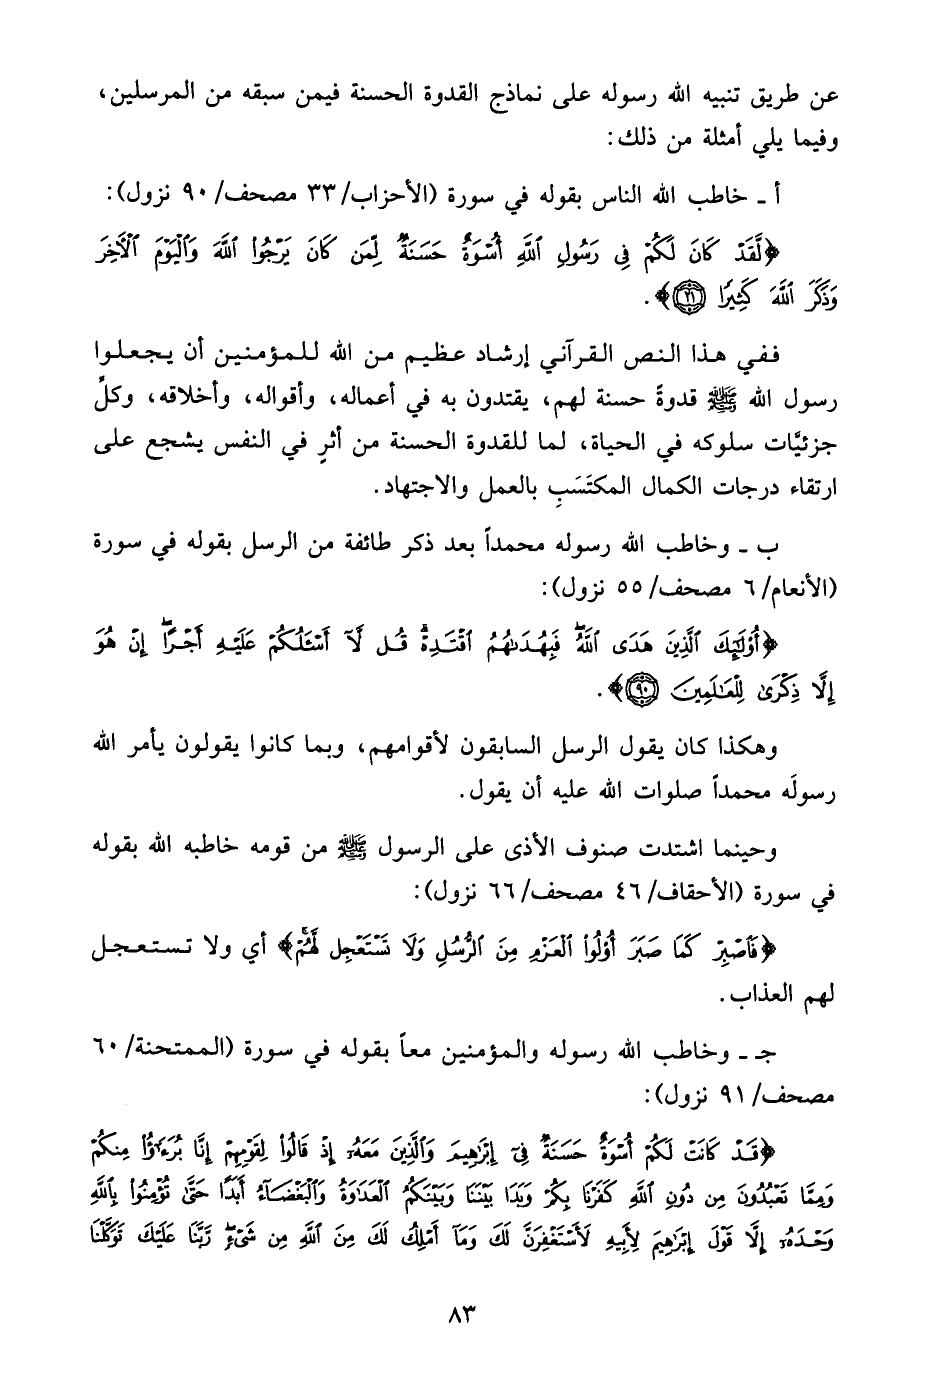 عن طريق تنبيه الله رسوله على نماذج القدوة الحسنة فيمن سبقه من المرسلين،
وفيما يلي أمثلة من ذلك:
أ ـ خاطب الله الناس بقوله في سورة (الأحزاب/ ٣٣ مصحف/ ٩٠ نزول):
﴿لَّقَدْ كَانَ لَكُمْ فِي رَسُولِ ٱللَّهِ أُسْوَةٌ حَسَنَةٌ لِّمَن كَانَ يَرْجُوا۟ ٱللَّهَ وَٱلْيَوْمَ ٱلْآخِرَ
وَذَكَرَ ٱللَّهَ كَثِيرًا ٢١﴾.
ففي هذا النص القرآني إرشاد عظيم من الله للمؤمنين أن يجعلوا
رسول الله ﷺ قدوةً حسنة لهم، يقتدون به في أعماله، وأقواله، وأخلاقه، وكلِّ
جزئيَّات سلوكه في الحياة، لما للقدوة الحسنة من أثرٍ في النفس يشجع على
ارتقاء درجات الكمال المكتَسَبِ بالعمل والاجتهاد.
ب ـ وخاطب الله رسوله محمداً بعد ذكر طائفة من الرسل بقوله في سورة
(الأنعام/ ٦ مصحف/ ٥٥ نزول):
﴿أُو۟لَٰٓئِكَ ٱلَّذِينَ هَدَى ٱللَّهُ ۖ فَبِهُدَىٰهُمُ ٱقْتَدِهْ ۗ قُل لَّآ أَسْـَٔلُكُمْ عَلَيْهِ أَجْرًا ۖ إِنْ هُوَ
إِلَّا ذِكْرَىٰ لِلْعَٰلَمِينَ ٩٠﴾.
وهكذا كان يقول الرسل السابقون لأقوامهم، وبما كانوا يقولون يأمر الله
رسولَه محمداً صلوات الله عليه أن يقول.
وحينما اشتدت صنوف الأذى على الرسول ﷺ من قومه خاطبه الله بقوله
في سورة (الأحقاف/ ٤٦ مصحف/ ٦٦ نزول):
﴿فَٱصْبِرْ كَمَا صَبَرَ أُو۟لُوا۟ ٱلْعَزْمِ مِنَ ٱلرُّسُلِ وَلَا تَسْتَعْجِل لَّهُمْ ۚ﴾ أي ولا تستعجل
لهم العذاب.
جـ ـ وخاطب الله رسوله والمؤمنين معاً بقوله في سورة (الممتحنة/ ٦٠
مصحف/ ٩١ نزول):
﴿قَدْ كَانَتْ لَكُمْ أُسْوَةٌ حَسَنَةٌ فِىٓ إِبْرَٰهِيمَ وَٱلَّذِينَ مَعَهُۥٓ إِذْ قَالُوا۟ لِقَوْمِهِمْ إِنَّا بُرَءَٰٓؤُا۟ مِنكُمْ
وَمِمَّا تَعْبُدُونَ مِن دُونِ ٱللَّهِ كَفَرْنَا بِكُمْ وَبَدَا بَيْنَنَا وَبَيْنَكُمُ ٱلْعَدَٰوَةُ وَٱلْبَغْضَآءُ أَبَدًا حَتَّىٰ تُؤْمِنُوا۟ بِٱللَّهِ
وَحْدَهُۥٓ إِلَّا قَوْلَ إِبْرَٰهِيمَ لِأَبِيهِ لَأَسْتَغْفِرَنَّ لَكَ وَمَآ أَمْلِكُ لَكَ مِنَ ٱللَّهِ مِن شَىْءٍ ۖ رَّبَّنَا عَلَيْكَ تَوَكَّلْنَا
٨٣